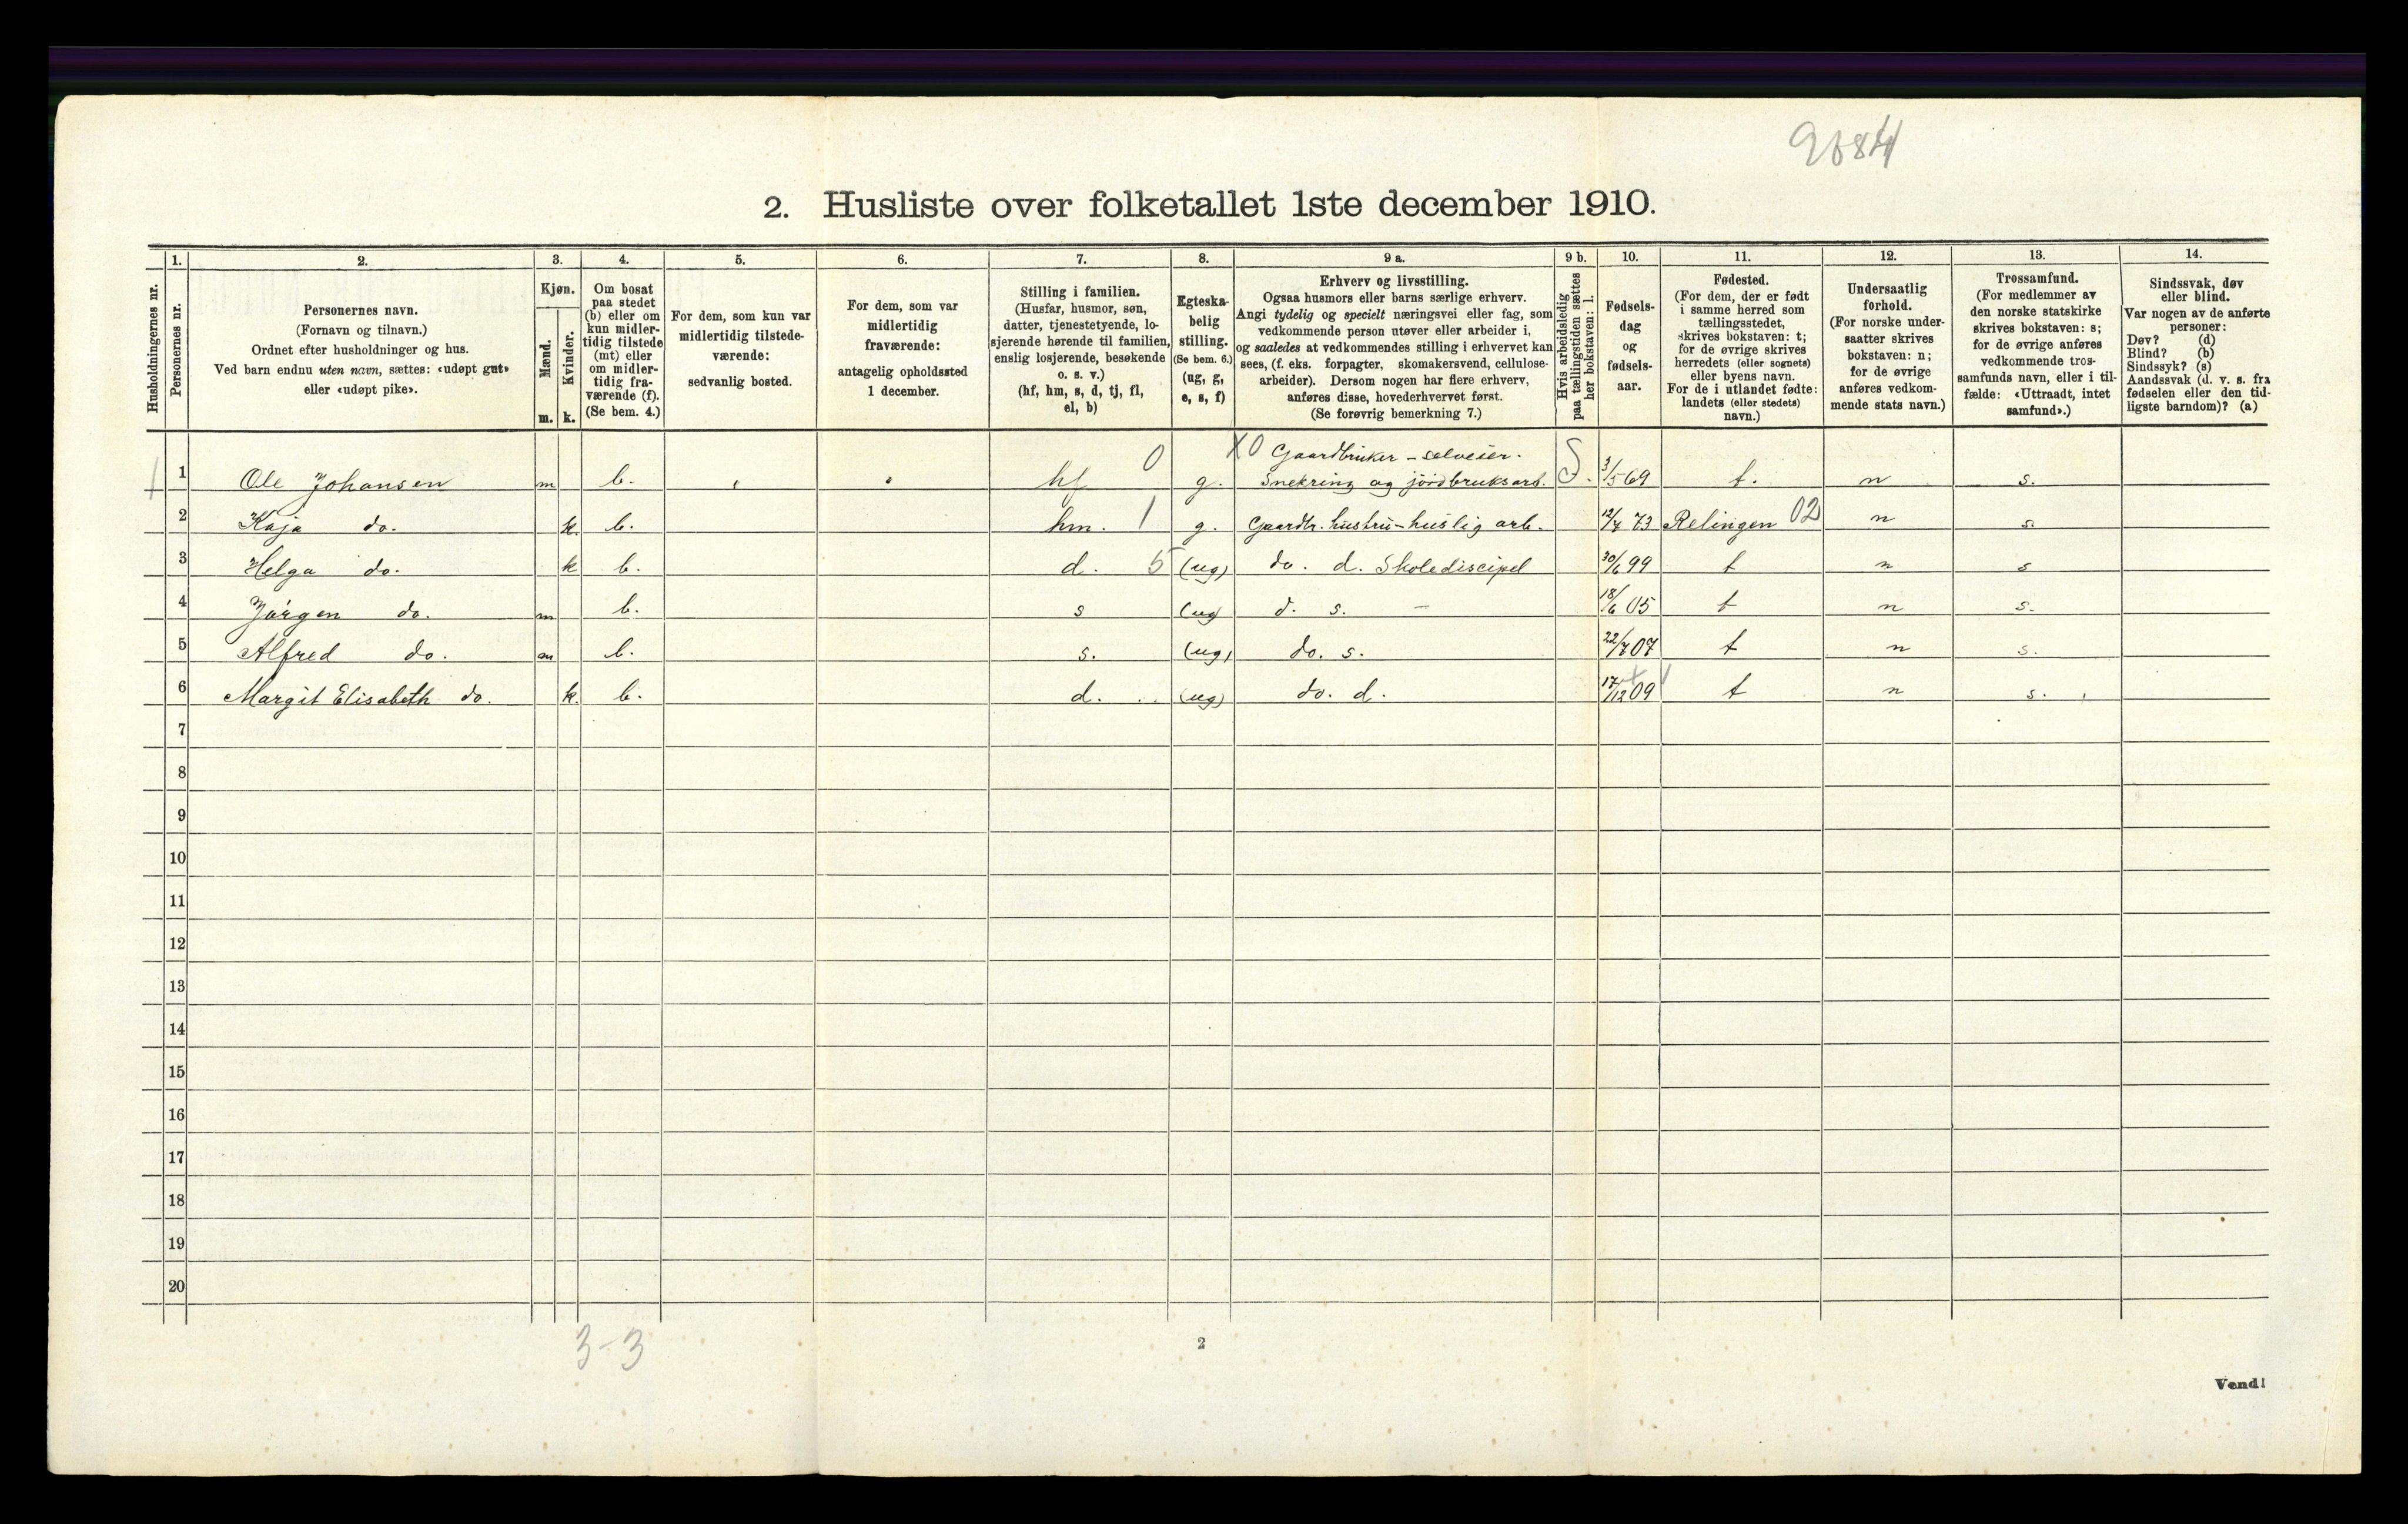 2. Husliste over folketallet 1ste december 1910.
Husholdningernes nr.
1.
Personernes nr.
2.
Personernes navn.
(Fornavn og tilnavn.)
Ordnet efter husholdninger og hus.
Ved barn endnu uten navn, sættes: «udøpt gut»
eller «udøpt pike».
3.
Kjøn.
Mænd.
Kvinder.
m. k.
4.
Om bosat
paa stedet
(b) eller om
kun midler-
tidig tilstede
(mt) eller
om midler-
tidig fra-
værende (f).
(Se bem. 4.)
5.
For dem, som kun var
midlertidig tilstede-
værende:
sedvanlig bosted.
6.
For dem, som var
midlertidig
fraværende:
antagelig opholdssted
1 december.
7.
Stilling i familien.
(Husfar, husmor, søn,
datter, tjenestetyende, lo-
sjerende hørende til familien,
enslig losjerende, besøkende
o. s. v.)
(hf, hm, s, d, tj, fl,
el, b)
8.
Egteska-
belig
stilling.
(Se bem. 6.)
(ug, g,
e, s, f)
9 a.
Erhverv og livsstilling.
Ogsaa husmors eller barns særlige erhverv.
Angi tydelig og specielt næringsvei eller fag, som
vedkommende person utøver eller arbeider i,
og saaledes at vedkommendes stilling i erhvervet kan
sees, (f. eks. forpagter, skomakersvend, cellulose-
arbeider). Dersom nogen har flere erhverv,
anføres disse, hovederhvervet først.
(Se forøvrig bemerkning 7.)
9 b.
Hvis arbeidsledig
paa tællingstiden sættes
her bokstaven: l.
10.
Fødsels-
dag
og
fødsels-
aar.
11.
Fødested.
(For dem, der er født
i samme herred som
tællingsstedet,
skrives bokstaven: t;
for de øvrige skrives
herredets (eller sognets)
eller byens navn.
For de i utlandet fødte:
landets (eller stedets)
navn.)
12.
Undersaatlig
forhold.
(For norske under-
saatter skrives
bokstaven: n;
for de øvrige
anføres vedkom-
mende stats navn.)
13.
Trossamfund.
(For medlemmer av
den norske statskirke
skrives bokstaven: s;
for de øvrige anføres
vedkommende tros-
samfunds navn, eller i til-
fælde: «Uttraadt, intet
samfund».)
14.
Sindssvak, døv
eller blind.
Var nogen av de anførte
personer:
Døv? (d)
Blind? (b)
Sindssyk? (s)
Aandssvak (d. v. s. fra
fødselen eller den tid-
ligste barndom)? (a)
X0 Gaardbruker - selveier.
1 1 Ole Johansen m b. hf 0 g. Snekring og jordbruksarb. S. 3/5 69 t. n s.
2 Kaja do. k. b. hm. 1 g. Gaardbr. hustru - huslig arb. 12/7 73 Relingen 02 n s.
3 Helga do. k b. d. 5 (ug) do. d. Skolediscipel 30/6 99 t n s
4 Jørgen do. m b. s (ug) d. s. - 18/6 05 t n s.
5 Alfred do. m b. s. (ug) do. s. 22/7 07 t n s.
6 Margit Elisabeth do. k. b. d. (ug) do. d. 17/12 09 t n s.
7
8
9
10
11
12
13
14
15
16
17
18
19
20
3-3
2
Vend!